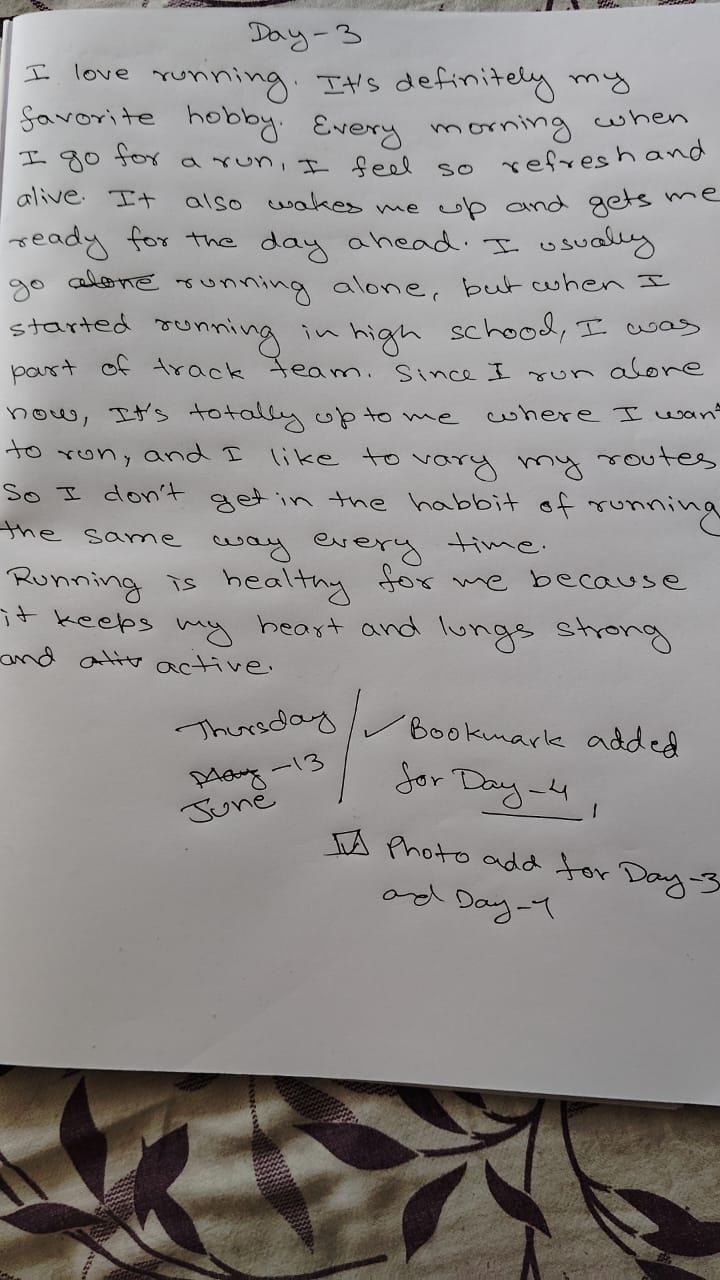 Day-3
I love running. It's definitely my
favorite hobby. Every morning when
I go for a run, I feel so refresh and
alive. It also wakes me up and gets me
ready for the day ahead. I usually
go alone running alone, but when I
started running in high school, I was
part of track team. Since I run alone
now, It's totally up to me where I want
to run, and I like to vary my routes
So I don't get in the habbit of running
the same way every time.
Running is healthy for me because
it keeps my heart and lungs strong
and active.
Thursday / ✓ Bookmark added
May -13 for Day-4,
June
☑ Photo add for Day-3
and Day-1